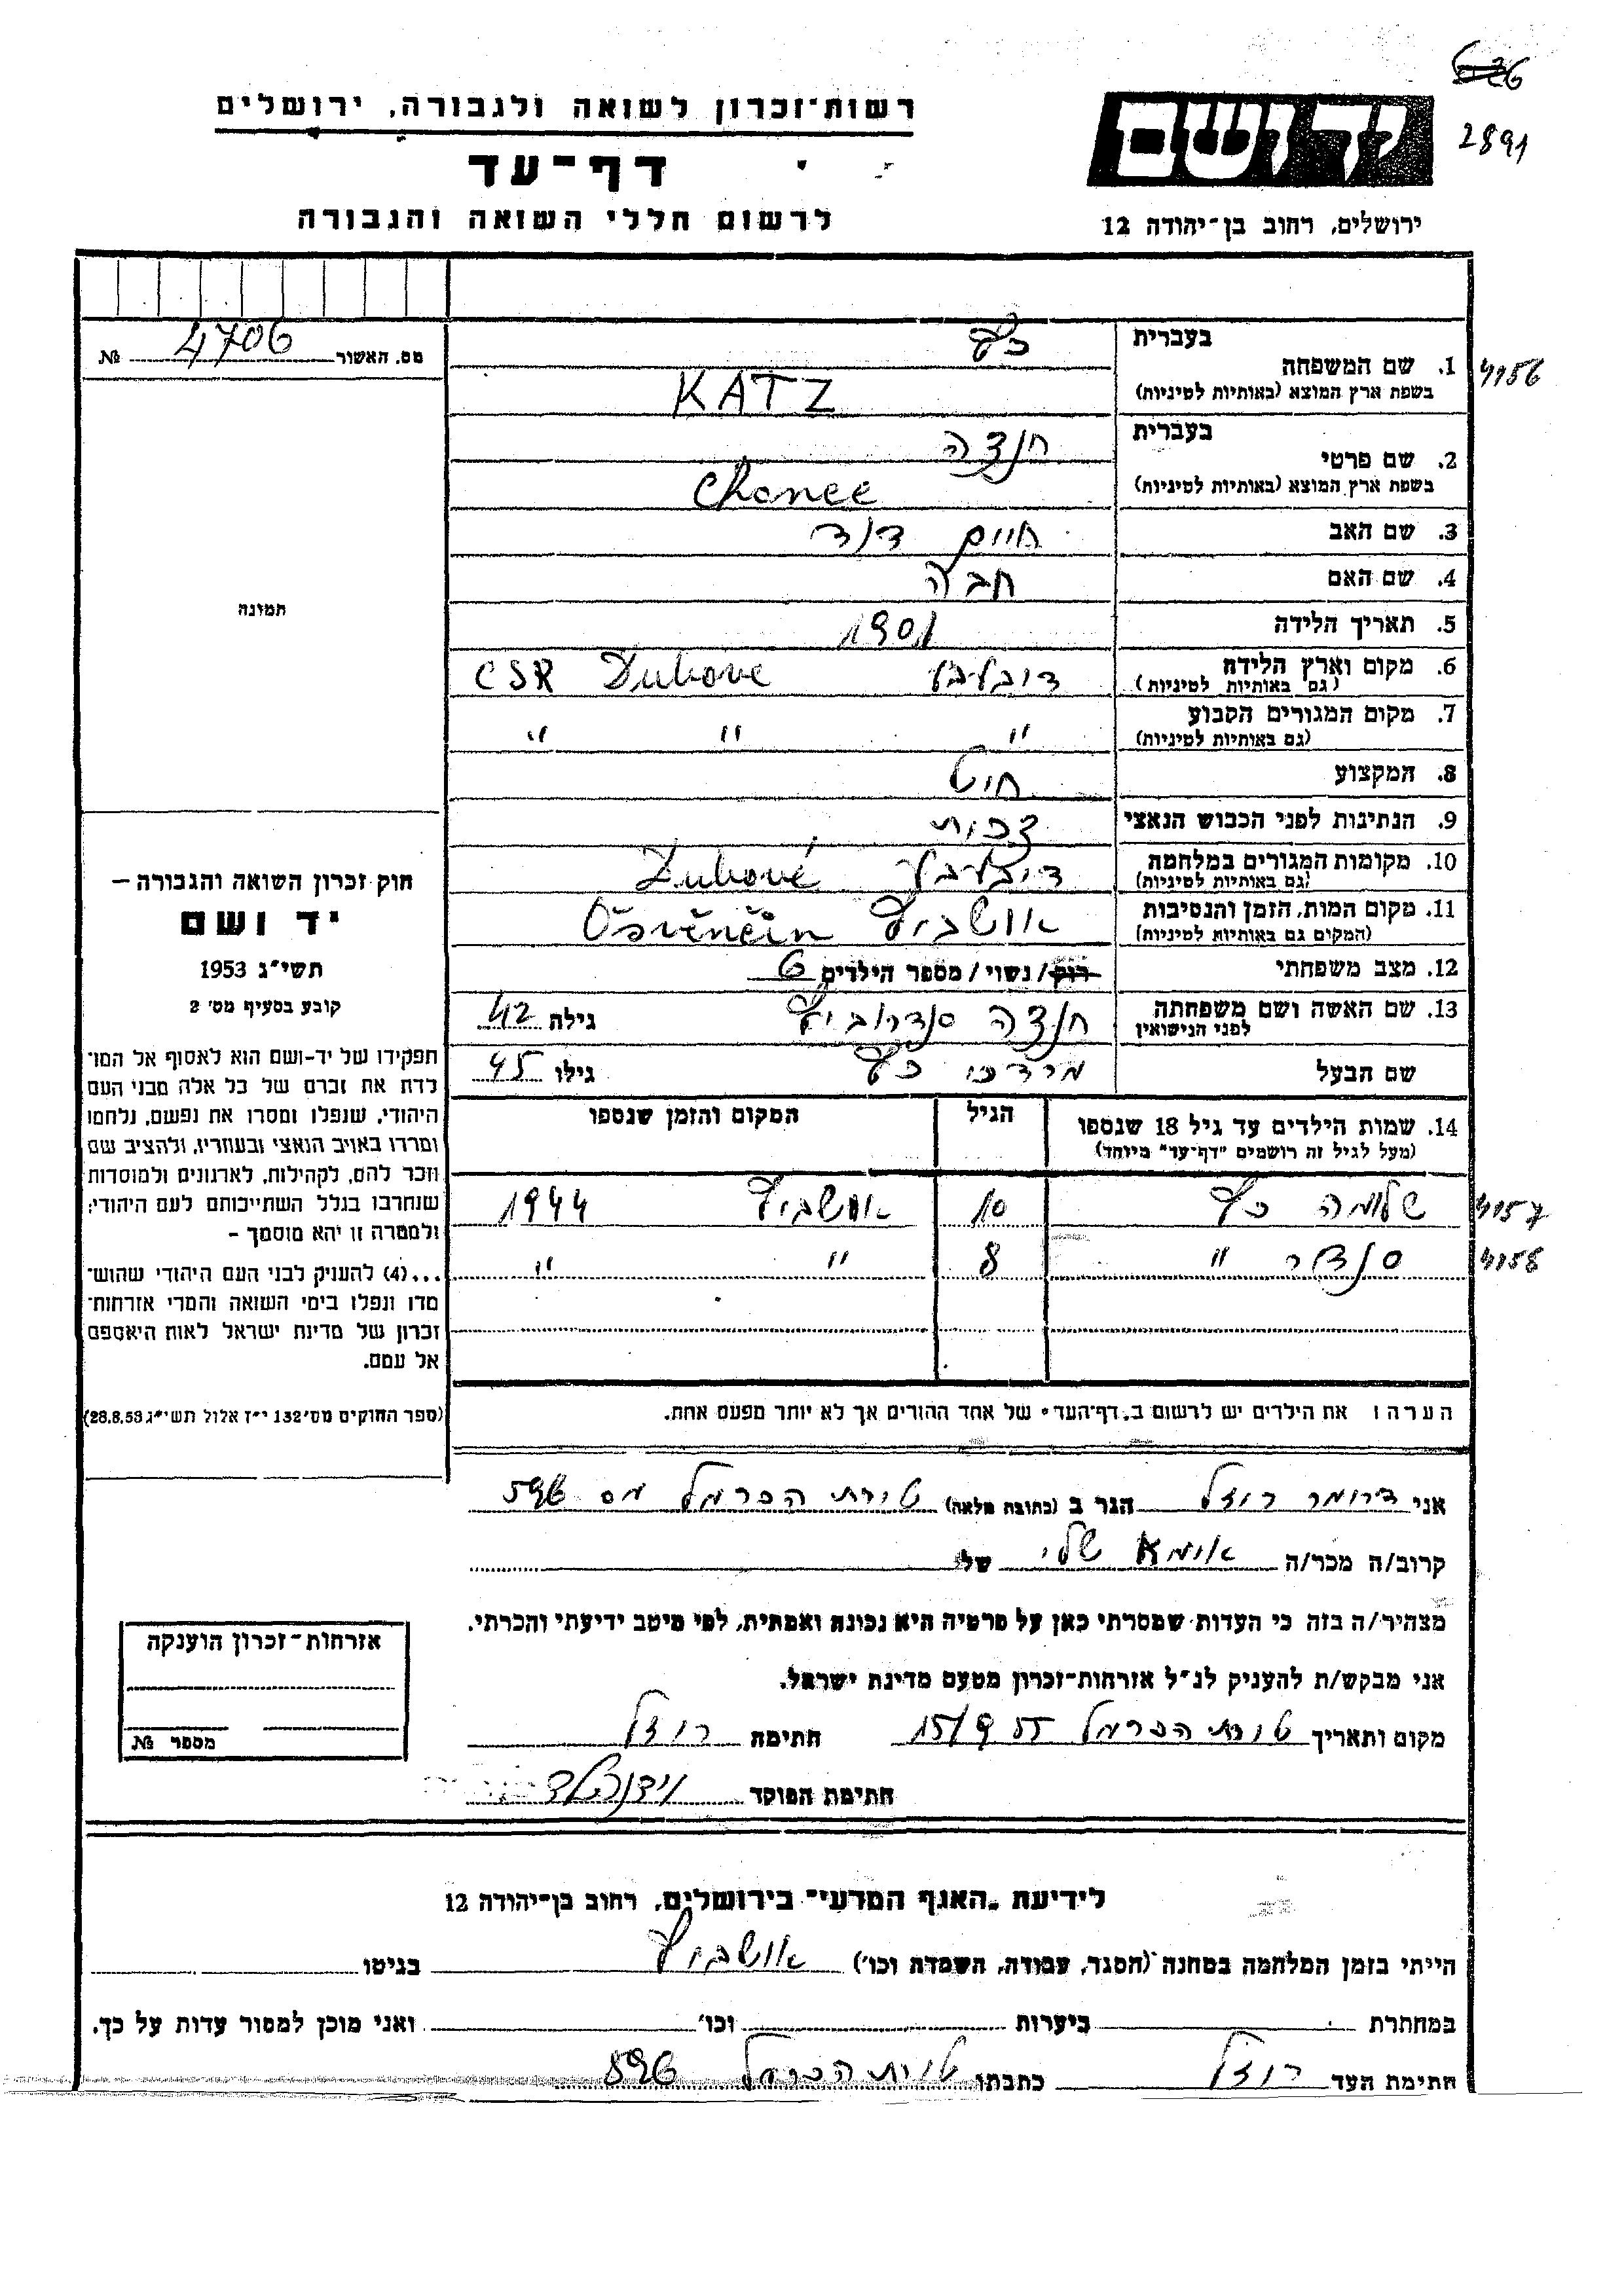 626
2891
יד ושם
ירושלים, רחוב בן־יהודה 12
רשות־זכרון לשואה ולגבורה, ירושלים
דף־עד
לרשום חללי השואה והגבורה
מס. האשור 4706 №
תמונה
חוק זכרון השואה והגבורה –
יד ושם
תשי״ג 1953
קובע בסעיף מס׳ 2
תפקידו של יד-ושם הוא לאסוף אל המו־
לדת את זכרם של כל אלה מבני העם
היהודי, שנפלו ומסרו את נפשם, נלחמו
ומרדו באויב הנאצי ובעוזריו, ולהציב שם
וזכר להם, לקהילות, לארגונים ולמוסדות
שנחרבו בגלל השתייכותם לעם היהודי;
ולמטרה זו יהא מוסמך –
...(4) להעניק לבני העם היהודי שהוש־
מדו ונפלו בימי השואה והמרי אזרחות־
זכרון של מדינת ישראל לאות היאספם
אל עמם.
(ספר החוקים מס׳ 132 י״ז אלול תשי״ג 28.8.53)
בעברית כץ
1. שם המשפחה 4156
בשפת ארץ המוצא (באותיות לטיניות) KATZ
בעברית חנצה
2. שם פרטי
בשפת ארץ המוצא (באותיות לטיניות) Chance
3. שם האב חיים דוד
4. שם האם חבה
5. תאריך הלידה 1901
6. מקום וארץ הלידה Dubove CSR
(גם באותיות לטיניות)
7. מקום המגורים הקבוע " " "
(גם באותיות לטיניות)
8. המקצוע חיט
9. הנתינות לפני הכבוש הנאצי צכית
10. מקומות המגורים במלחמה Dubové
(גם באותיות לטיניות)
11. מקום המות, הזמן והנסיבות אושביץ Ošvěnčin
(המקום גם באותיות לטיניות)
12. מצב משפחתי רוק/נשוי/מספר הילדים 6
13. שם האשה ושם משפחתה חנצה סנדרוביץ גילה 42
לפני הנישואין
שם הבעל מרדכי כץ גילו 45
14. שמות הילדים עד גיל 18 שנספו הגיל המקום והזמן שנספו
(מעל לגיל זה רושמים "דף־עד" מיוחד)
שלומה כץ 10 אושביץ 1944 4157
סנדר " 8 " " 4158
הערה: את הילדים יש לרשום ב„דף־העד" של אחד ההורים אך לא יותר מפעם אחת.
אני דרומר רוזל הגר ב (כתובת מלאה) טירת הכרמל מס 596
קרוב/ה מכר/ה אימא שלי של
מצהיר/ה בזה כי העדות שמסרתי כאן על פרטיה היא נכונה ואמתית, לפי מיטב ידיעתי והכרתי.
אני מבקש/ת להעניק לנ״ל אזרחות־זכרון מטעם מדינת ישראל.
מקום ותאריך טירת הכרמל 15/9 55 חתימה רוזל
חתימת הפוקד
אזרחות־זכרון הוענקה
מספר №
לידיעת „האגף המדעי" בירושלים, רחוב בן־יהודה 12
הייתי בזמן המלחמה במחנה (הסגר, עבודה, השמדה וכו׳) אושביץ בגיטו
במחתרת ביערות וכו׳ ואני מוכן למסור עדות על כך.
חתימת העד רוזל כתבתו טירת הכרמל 596